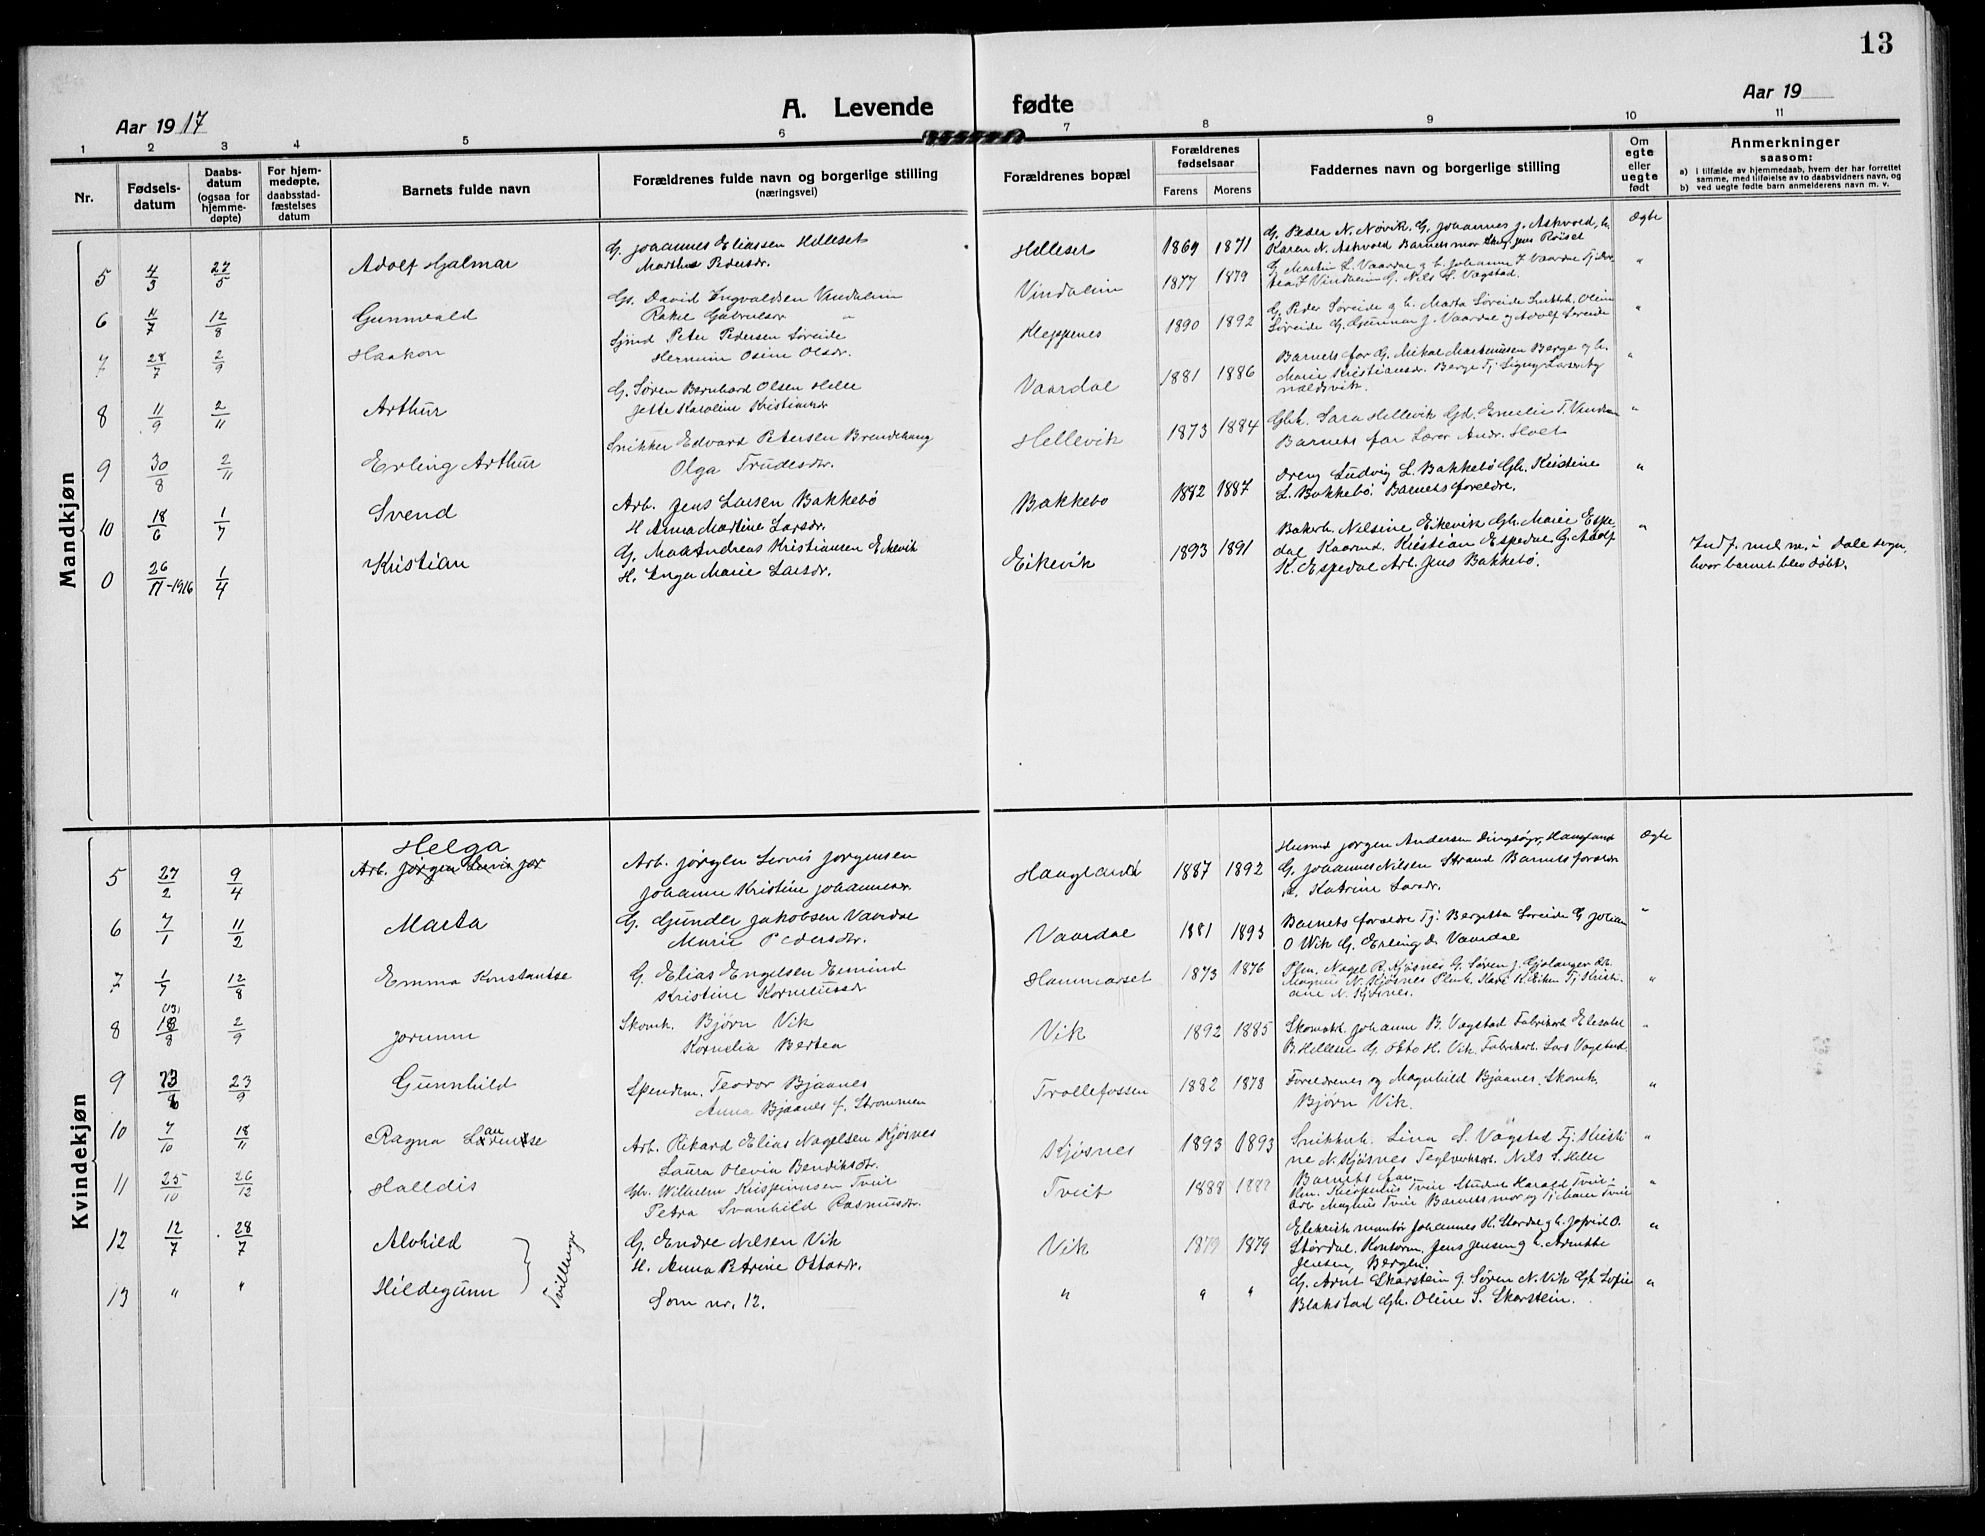 13
Aar 1917
A. Levende fødte
Aar 19
1 2 3 4 5 6 7 8 9 10 11
Nr.
Fødselsdatum
Daabsdatum (ogsaa for hjemmedøpte)
For hjemmedøpte, daabsstadfæstelses datum
Barnets fulde navn
Forældrenes fulde navn og borgerlige stilling
(næringsvei)
Forældrenes bopæl
Forældrenes fødselsaar
Farens Morens
Faddernes navn og borgerlige stilling
Om egte eller uegte født
Anmerkninger
saasom:
a) I tilfælde av hjemmedaab, hvem der har forrettet samme, med tilføielse av to daabsvidners navn, og
b) ved uegte fødte barn anmelderens navn m. v.
Mandkjøn
5 4/3 27/5 Adolf Hjalmar G. Johannes Eliassen Helleset Marthe Pedersdr. Helleset 1869 1871 G. Peder N. Nøvik. G. Johannes J. Askvold, h. Karen N. Askvold Barnets mor Jens Røiset Ægte
6 11/7 12/8 Gunnvald G. David Ingvaldsen Vindheim Rakel Gabrielsdr " Vindheim 1877 1879 G. Martin L. Vaardal g h. Johanne J. Vaardal Vindheim G. Nils L. Vagstad. "
7 28/7 2/9 Haakon Peter Pedersen Søreide Hermine Osine Olsdr. Kleppenes 1890 1892 G. Peder Søreide g h. Marta Søreide Oline Søreide G. Gunnar J. Vaardal og Adolf Søreide "
8 11/9 2/11 Arthur G. Søren Bernhard Olsen Helle Jette Karoline Kristiansdr Vaardal 1881 1886 Barnets far G. Mikal Martinussen Berge g h. Marie Kristiansdr. Berge Tj. Signy "
9 30/8 2/11 Erling Arthur Snikker Edvard Petersen Brendehaug Olga Trudesdtr. Hellevik 1873 1884 Gbh. Sara Hellevik Gd. Emilie T. Barnets far Lærer Andr. Hoel "
10 18/6 1/7 Svend Arb. Jens Larsen Bakkebø H. Anna Martine Larsdr. Bakkebo 1882 1887 Dreng Ludvig L. Bakkebø Gh. Kristine L. Bakkebø. Barnets foreldre. "
0 26/11-1916 1/4 Kristian G. Andreas Kristiansen Eikevik H. Inga Marie Larsdr. Eikevik 1893 1891 Nilsine Eikevik Gh. Marie Espedal Kristian Espedal G. Adolf K. Espedal Arb. Jens Bakkebø. " Indf. uden nr. i Dale sogn, hvor barnet blev døbt.
Kvindekjøn
5 27/2 9/4 Helga Arb. Jørgen Servis Jør Arb. Jørgen Servis Jørgensen Johanne Kristine Johannesdr. Haugland 1887 1892 Husmd Jørgen Andersen Dingsøyr, Haugland G. Johannes Nilsen Strand Barnets forældre Katrine Larsdr. Ægte
6 7/1 11/2 Marta G. Gunder Jakobsen Vaardal Marie Pedersdtr. Vaardal 1881 1893 Barnets forældre Tj. Bergitta Søreide G Johan O Wik G. Erling D. Vaardal "
7 1/7 12/8 Emma Konstanse G. Elias Engelsen Kristine Korneliusdr Hammarset 1873 1876 Nagel R. Kjøsnes G. Søren J. Gjolanger Magnus N. Kjøsnes Kari K. Eiken Tj. Kristiane N. Kjøsnes. "
8 18/8 2/9 Jorunn Skomk. Bjørn Vik Kornelia Bertea Vik 1892 1885 Johanne B. Vagstad Fabrikarb. B. Hellem G. Otto H. Vik. Fabrikarb. Lars Vagstad. "
9 23/8 23/9 Gunnhild Teodor Bjaanes Anna Bjaanes f. Strømmen Trollefossen 1882 1878 Foreldrenes og Magnhild Bjaanes. Skomk. Bjørn Vik. "
10 7/10 18/11 Ragna Arb. Rikard Elias Nagelsen Kjøsnes Laura Olevia Bendiksdtr. Kjøsnes 1893 1893 Lina S. Vagstad Tj. Kristine N. Kjøsnes Teglverksarb. Nils S. Helle "
11 25/10 26/12 Halldis Gbr. Wilhelm Kristiansen Tveit Petra Svanhild Rasmusdtr. Tveit 1888 Barnets far Tveit Student Harald Tveit Arb Magnus Tveit Barnets mor og Tj. Marie Tveit "
12 12/7 28/7 Alvhild G. Endre Nilsen Vik H. Anna Petrine Ottosdr. Vik 1879 1879 Elektrisk montør Johannes K. Størdal g h. Jofrid O. Størdal. Kontorm. Jens Jensen g h. Jensen, Bergen. "
Tvillinger
13 " " Hildegunn Som nr. 12. " " " G. Arnt Skarstein g. Søren N. Vik Gh. Sofie Blakstad Gh. Oline S. Skarstein. "